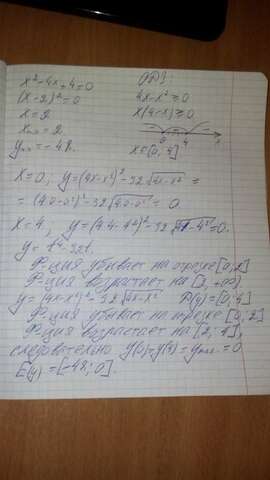 x²-4x+4=0
(x-2)²=0
x=2
x₀=2
y = -48.
ОДЗ:
4x-x²≥0
x(4-x)≥0
0 4 x
x∈[0,4]
x=0, y=(4x-x²)²-32√4x-x² =
=(4·0-0²)²-32√4·0-0² = 0
x=4, y=(4·4-4²)²-32√4·4-4²=0.
Ф-ция убывает на отрезке [0,2]
Ф-ция возрастает на [2,+∞).
y=(4x-x²)²-32√4x-x² D(y)=[0;4]
Ф-ция убывает на отрезке [0,2]
Ф-ция возрастает на [2;4],
следовательно y(0)=y(4)=yнаиб.=0
E(y)=[-48;0].